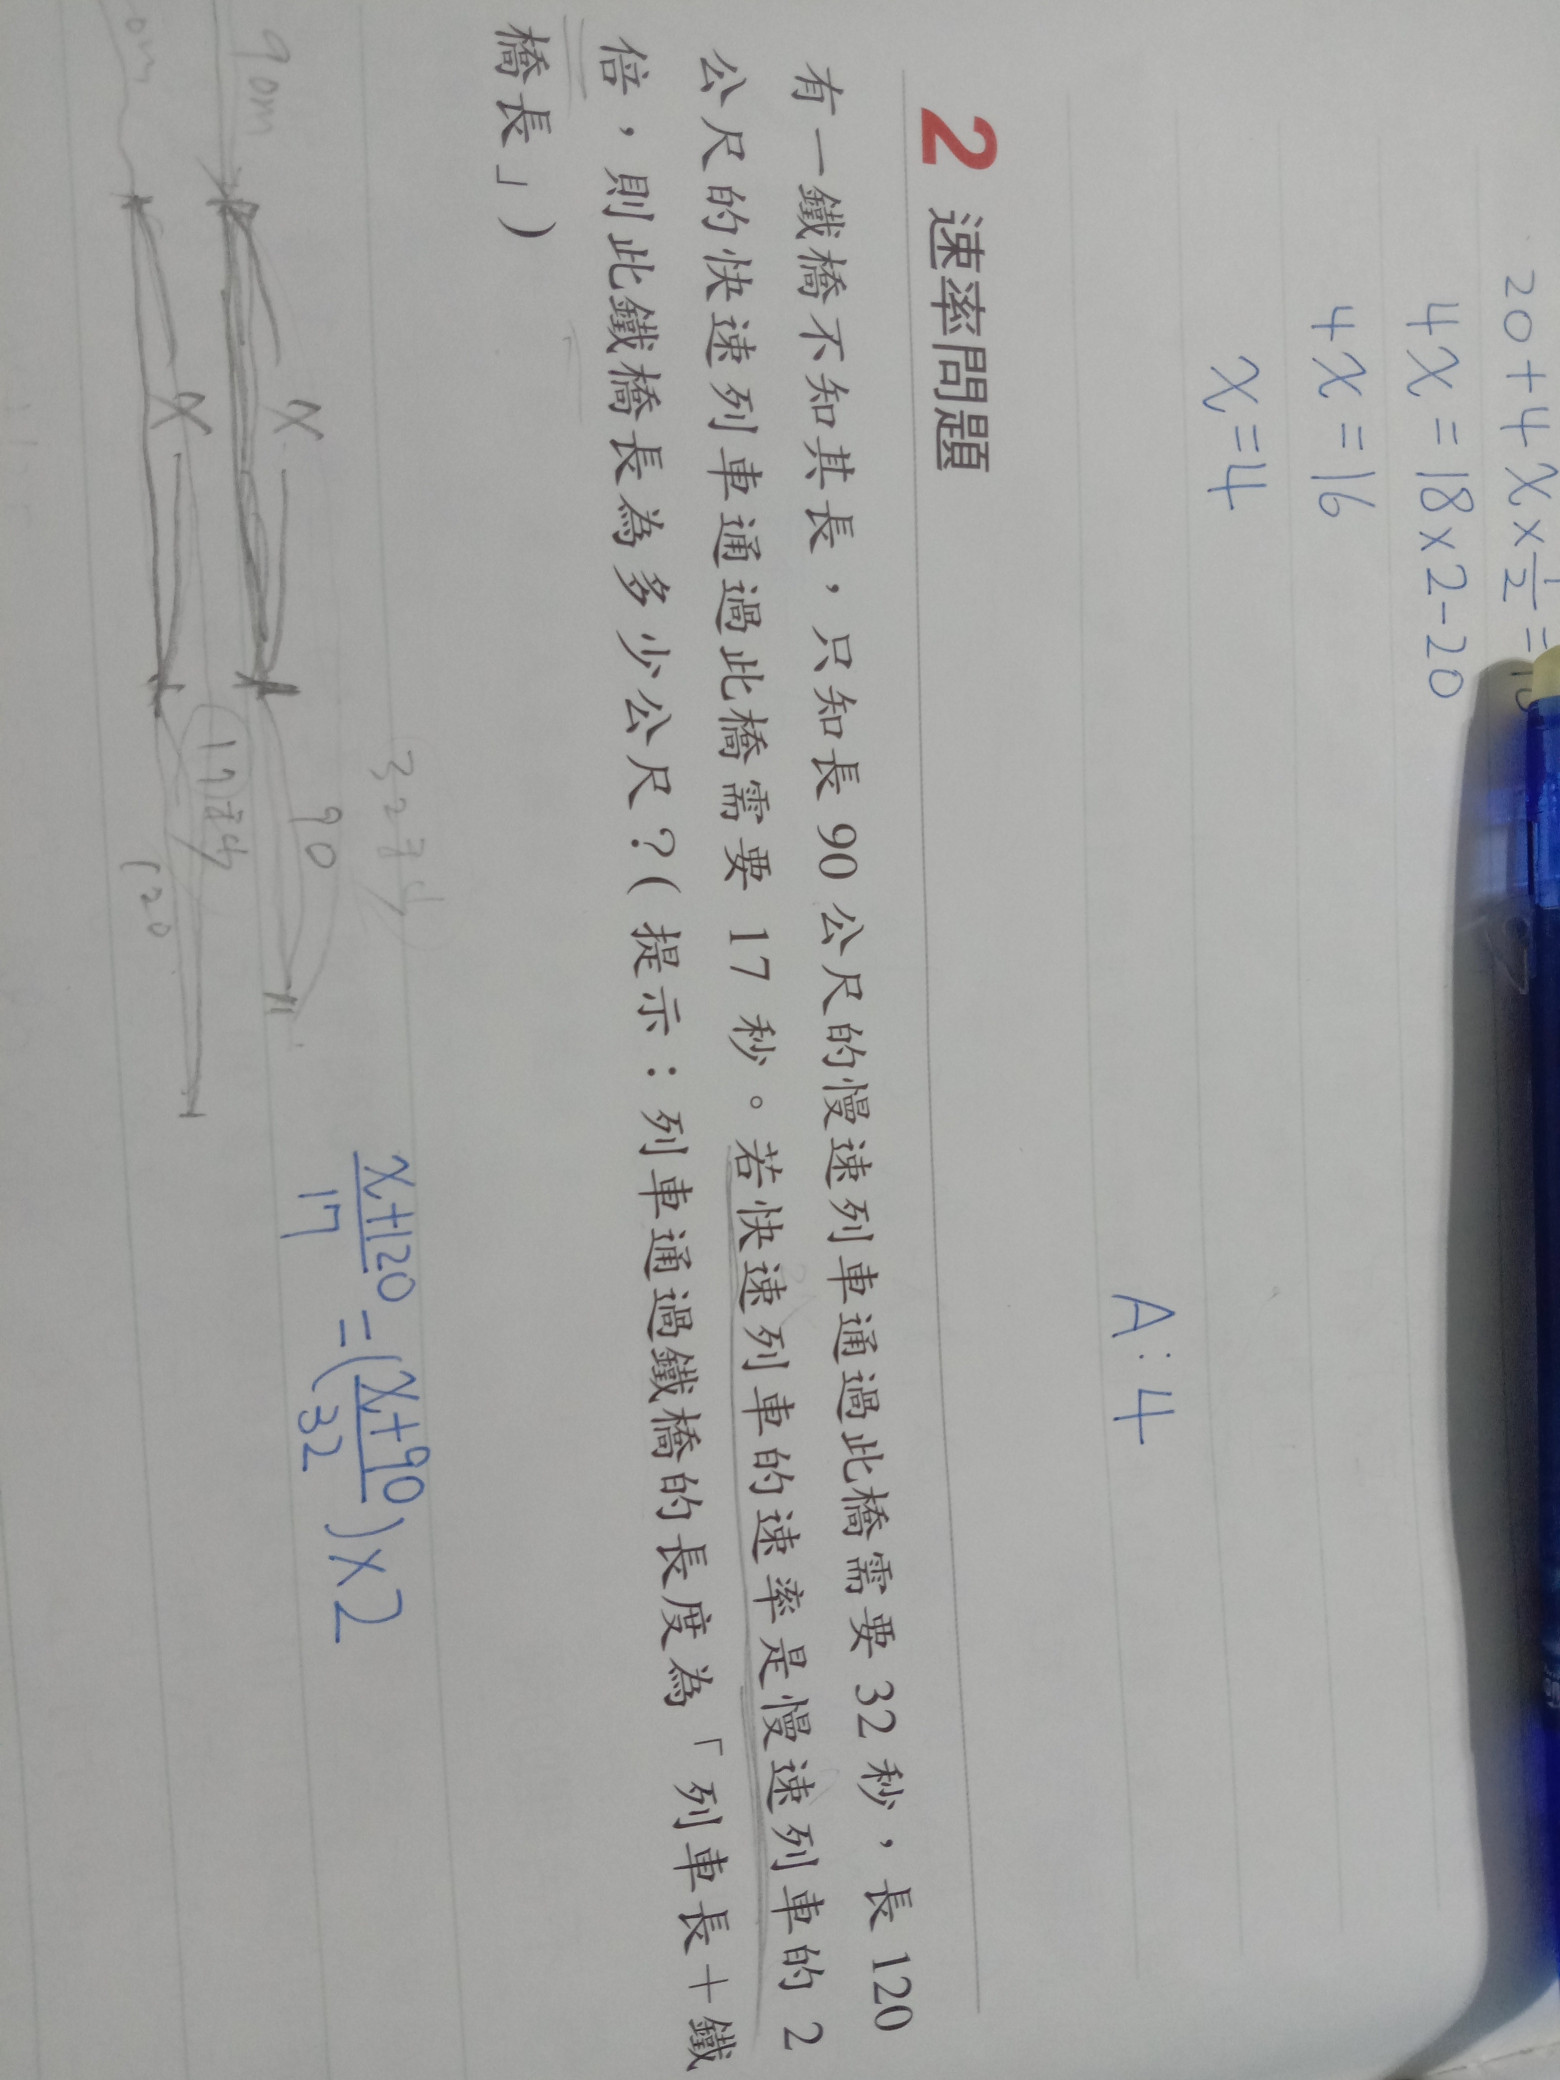 20+4x×1/2=
4x=18×2-20
4x=16
x=4
A:4
2 速率問題
有一鐵橋不知其長，只知長90公尺的慢速列車通過此橋需要32秒，長120
公尺的快速列車通過此橋需要17秒。若快速列車的速率是慢速列車的2
倍，則此鐵橋長為多少公尺？(提示：列車通過鐵橋的長度為「列車長＋鐵
橋長」)
32秒
90m x 90
17秒
x 120
(x+120)/17=((x+90)/32)×2